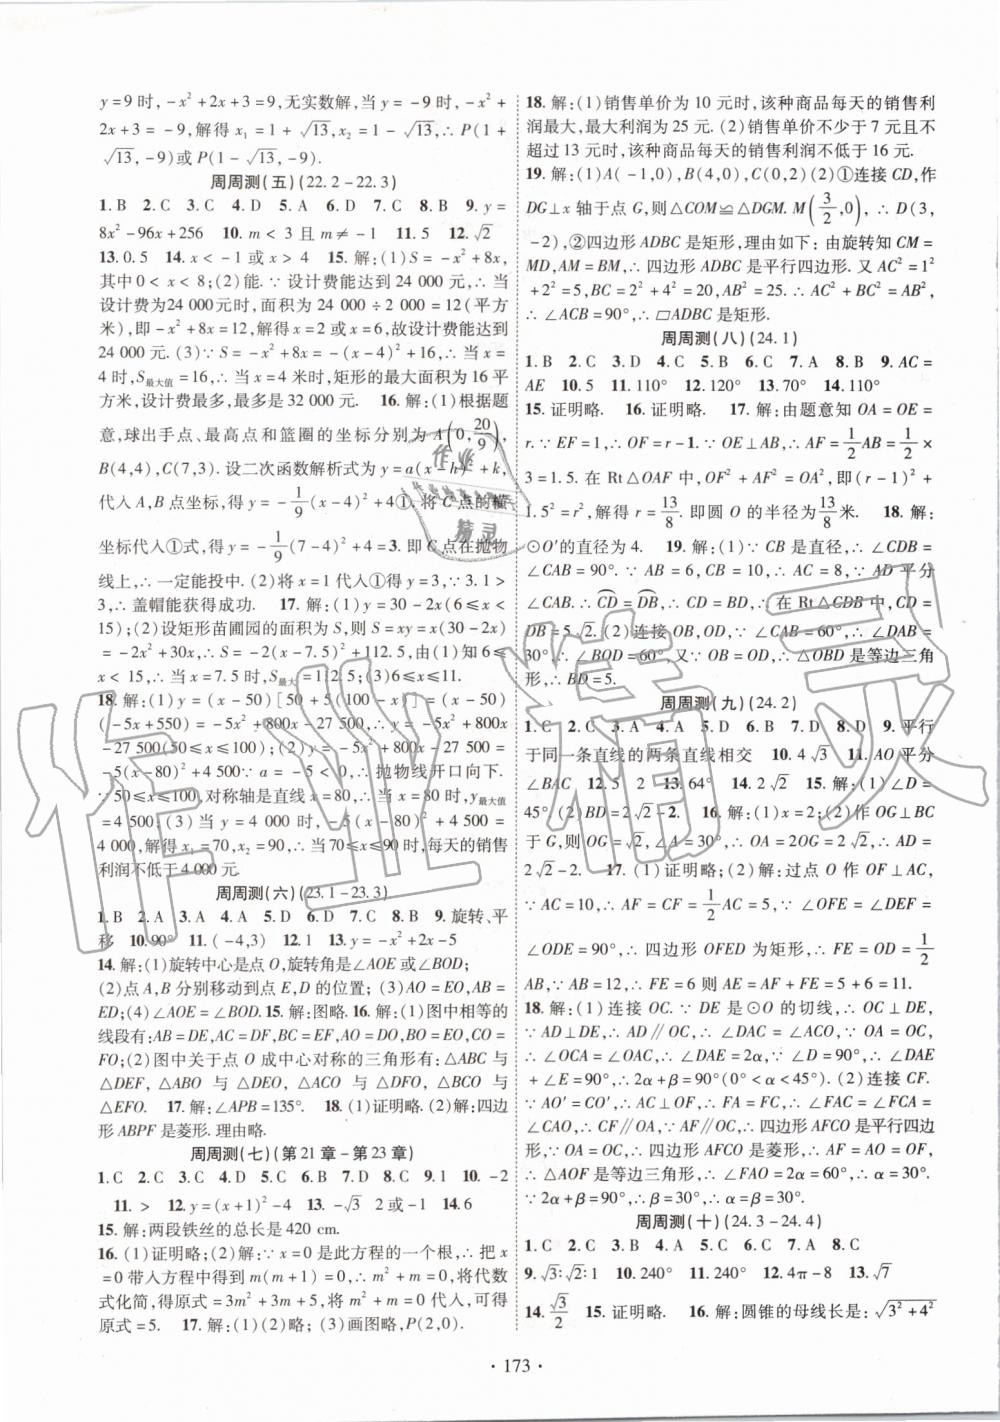 y=9时,-x²+2x+3=9,无实数解,当y=-9时,-x²+
2x+3=-9,解得x₁=1+√13,x₂=1-√13,∴P(1+
√13,-9)或P(1-√13,-9).
周周测(五)(22.2-22.3)
1.B 2.C 3.C 4.D 5.A 6.D 7.C 8.B 9.y=
8x²-96x+256 10.m<3且m≠-1 11.5 12.√2
13.0.5 14.x<-1或x>4 15.解:(1)S=-x²+8x,
其中0<x<8;(2)能.∵设计费能达到24 000元,∴当
设计费为24 000元时,面积为24 000÷2 000=12(平方
米),即-x²+8x=12,解得x=2或x=6,故设计费能达到
24 000元.(3)∵S=-x²+8x=-(x-4)²+16,∴当x=
4时,S最大值=16,∴当x=4米时,矩形的最大面积为16平
方米,设计费最多,最多是32 000元. 16.解:(1)根据题
意,球出手点、最高点和篮圈的坐标分别为A(0,20/9),
B(4,4),C(7,3).设二次函数解析式为y=a(x-h)²+k,
代入A,B点坐标,得y=-1/9(x-4)²+4①.将C点的横
坐标代入①式,得y=-1/9(7-4)²+4=3.即C点在抛物
线上,∴一定能投中.(2)将x=1代入①得y=3,∵3.1>
3,∴盖帽能获得成功. 17.解:(1)y=30-2x(6≤x<
15);(2)设矩形苗圃园的面积为S,则S=xy=x(30-2x)
=-2x²+30x,∴S=-2(x-7.5)²+112.5,由(1)知6≤x
<15,∴当x=7.5时,S最大=112.5;(3)6≤x≤11.
18.解:(1)y=(x-50)[50+5(100-x)]=(x-50)
(-5x+550)=-5x²+800x-27 500,∴y=-5x²+800x
-27 500(50≤x≤100);(2)y=-5x²+800x-27 500=
-5(x-80)²+4 500∵a=-5<0,∴抛物线开口向下.
∵50≤x≤100,对称轴是直线x=80,∴当x=80时,y最大值
=4 500;(3)当y=4 000时,-5(x-80)²+4 500=
4 000,解得x₁=70,x₂=90,∴当70≤x≤90时,每天的销售
利润不低于4 000元.
周周测(六)(23.1-23.3)
1.B 2.A 3.A 4.A 5.D 6.B 7.C 8.B 9.旋转、平
移 10.90° 11.(-4,3) 12.1 13.y=-x²+2x-5
14.解:(1)旋转中心是点O,旋转角是∠AOE或∠BOD;
(2)点A,B分别移动到点E,D的位置;(3)AO=EO,AB=
ED;(4)∠AOE=∠BOD. 15.解:图略. 16.解:(1)图中相等的
线段有:AB=DE,AC=DF,BC=EF,AO=DO,BO=EO,CO=
FO;(2)图中关于点O成中心对称的三角形有:△ABC与
△DEF,△ABO与△DEO,△ACO与△DFO,△BCO与
△EFO. 17.解:∠APB=135°. 18.(1)证明略.(2)解:四边
形ABPF是菱形.理由略.
周周测(七)(第21章-第23章)
1.C 2.D 3.A 4.A 5.B 6.C 7.C 8.A 9.1 10.-2
11.> 12.y=(x+1)²-4 13.-√3 2或-1 14.6
15.解:两段铁丝的总长是420 cm.
16.(1)证明略;(2)解:∵x=0是此方程的一个根,∴把x
=0带入方程中得到m(m+1)=0,∴m²+m=0,将代数
式化简,得原式=3m²+3m+5,将m²+m=0代入,可得
原式=5. 17.解:(1)(2)略;(3)画图略,P(2,0).
18.解:(1)销售单价为10元时,该种商品每天的销售利
润最大,最大利润为25元.(2)销售单价不少于7元且不
超过13元时,该种商品每天的销售利润不低于16元.
19.解:(1)A(-1,0),B(4,0),C(0,2)(2)①连接CD,作
DG⊥x轴于点G,则△COM≌△DGM.M(3/2,0),∴D(3,
-2),②四边形ADBC是矩形,理由如下:由旋转知CM=
MD,AM=BM,∴四边形ADBC是平行四边形.又AC²=1²
+2²=5,BC²=2²+4²=20,AB²=25.∴AC²+BC²=AB²,
∴∠ACB=90°,∴▱ADBC是矩形.
周周测(八)(24.1)
1.B 2.C 3.D 4.C 5.D 6.B 7.A 8.B 9.AC=
AE 10.5 11.110° 12.120° 13.70° 14.110°
15.证明略. 16.证明略. 17.解:由题意知OA=OE=
r.∵EF=1,∴OF=r-1.∵OE⊥AB,∴AF=1/2AB=1/2×
3=1.5.在Rt△OAF中,OF²+AF²=OA²,即(r-1)²+
1.5²=r²,解得r=13/8.即圆O的半径为13/8米. 18.解:
⊙O′的直径为4. 19.解:(1)∵CB是直径,∴∠CDB=
∠CAB=90°.∵BC=10,AB=6,∴AC=8,∵AD平分
∠CAB.∴CD=DB,∴CD=BD,∴在Rt△CDB中,CD=
DB=5√2.(2)连接OB,OD,∵∠CAB=60°,∴∠DAB=
30°∴∠BOD=60°.又∵OB=OD,∴△OBD是等边三角
形,∴BD=5.
周周测(九)(24.2)
1.C 2.C 3.D 4.A 5.D 6.B 7.D 8.D 9.平行
于同一条直线的两条直线相交 10.4√3 11.AO平分
∠BAC 12.5 2 13.64° 14.2√2 15.解:(1)∠D=
45°.(2)BD=2√2-2. 16.解:(1)x=2;(2)作OG⊥BC
于G,则OG=√2,∵∠A=30°,∴AO=2OG=2√2,∴AD=
2√2-2. 17.(1)证明略;(2)解:过点O作OF⊥AC,∵
∵AC=10,∴AF=CF=1/2AC=5,∵∠OFE=∠DEF=
∠ODE=90°,∴四边形OFED为矩形,∴FE=OD=1/2
AB,∵AB=12,∴FE=6则AE=AF+FE=5+6=11.
18.解:(1)连接OC.∵DE是⊙O的切线,∴OC⊥DE,
∵AD⊥DE,∴AD∥OC,∴∠DAC=∠ACO,∵OA=OC,
∴∠OCA=∠OAC,∴∠DAE=2α,∵∠D=90°,∴∠DAE
+∠E=90°,∴2α+β=90°(0°<α<45°).(2)连接CF.
∵AO′=CO′,∴AC⊥OF,∴FA=FC,∴∠FAC=∠FCA
=∠CAO,∴CF∥OA,∵AF∥OC,∴四边形AFCO是平行四边
形,∵OA=OC,∴四边形AFCO是菱形,∴AO=AF=OF,
∴△AOF是等边三角形,∴∠FAO=2α=60°,∴α=30°.
∵2α+β=90°,∴β=30°,∴α=β=30°.
周周测(十)(24.3-24.4)
1.C 2.C 3.C 4.B 5.C 6.B 7.A 8.C
9.√3∶√2∶1 10.240° 11.240° 12.4π-8 13.√7
14.√3/2 15.证明略. 16.解:圆锥的母线长是:√3²+4²
·173·
作业精灵